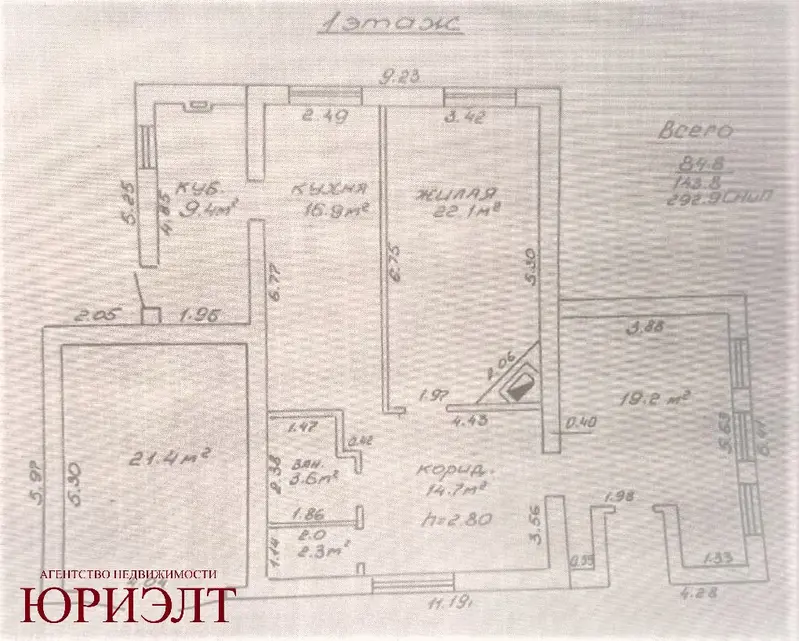 1 этаж
9.23
2.49
3.42
Всего
84.8
143.8
292.9 СНИП
5.25
4.85
КУБ.
9.4м²
КУХНЯ
15.9м²
ЖИЛАЯ
22.1м²
6.77
6.75
5.30
2.05
1.95
3.88
2.06
1.97
4.43
0.40
19.2 м²
5.63
1.47
0.42
21.4м²
5.97
5.30
2.38
3.6м²
КОРИД.
14.7м²
h=2.80
1.86
2.0
2.3м²
1.14
3.56
1.98
1.33
4.28
4.04
11.19
АГЕНТСТВО НЕДВИЖИМОСТИ
ЮРИЭЛТ